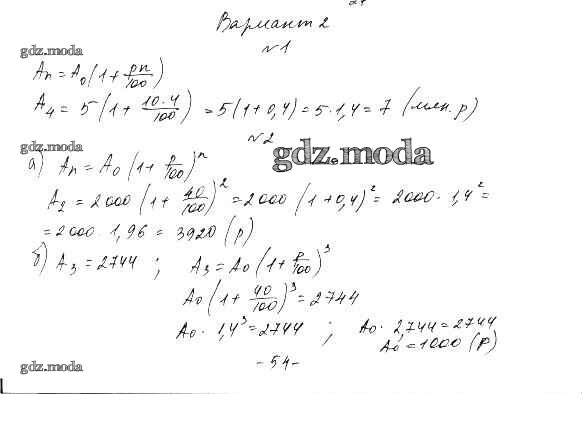 Вариант 2
№1
gdz.moda
An = A0(1 + pn/100)
A4 = 5(1 + 10·4/100) = 5(1+0,4) = 5·1,4 = 7 (млн. р)
№2
gdz.moda
gdz.moda
а) An = A0(1 + p/100)^n
A2 = 2000(1 + 40/100)^2 = 2000(1+0,4)^2 = 2000·1,4^2 =
= 2000·1,96 = 3920 (р)
б) A3 = 2744 ; A3 = A0(1 + p/100)^3
A0(1 + 40/100)^3 = 2744
A0·1,4^3 = 2744 ; A0·2,744 = 2744
A0 = 1000 (р)
-54-
gdz.moda